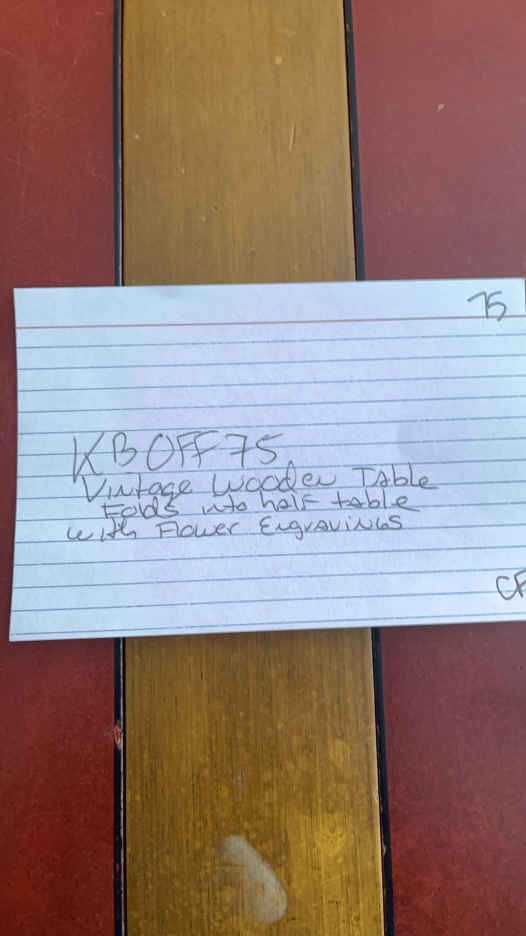 75
KBOFF75
Vintage Wooden Table
Folds into half table
with Flower Engravings
CF